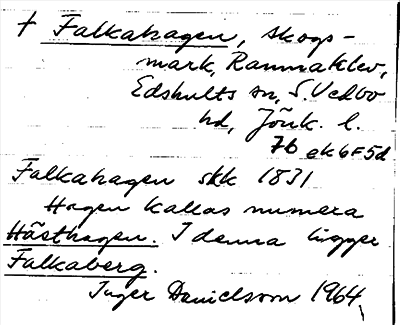 † Falkahagen, skogs-
mark, Rammaklev,
Edshults sn, S. Vedbo
hd, Jönk. l.
7b ek 6F5d
Falkahagen skk 1831
Hagen kallas numera
Hästhagen. I denna ligger
Falkaberg.
Inger Danielsson 1964